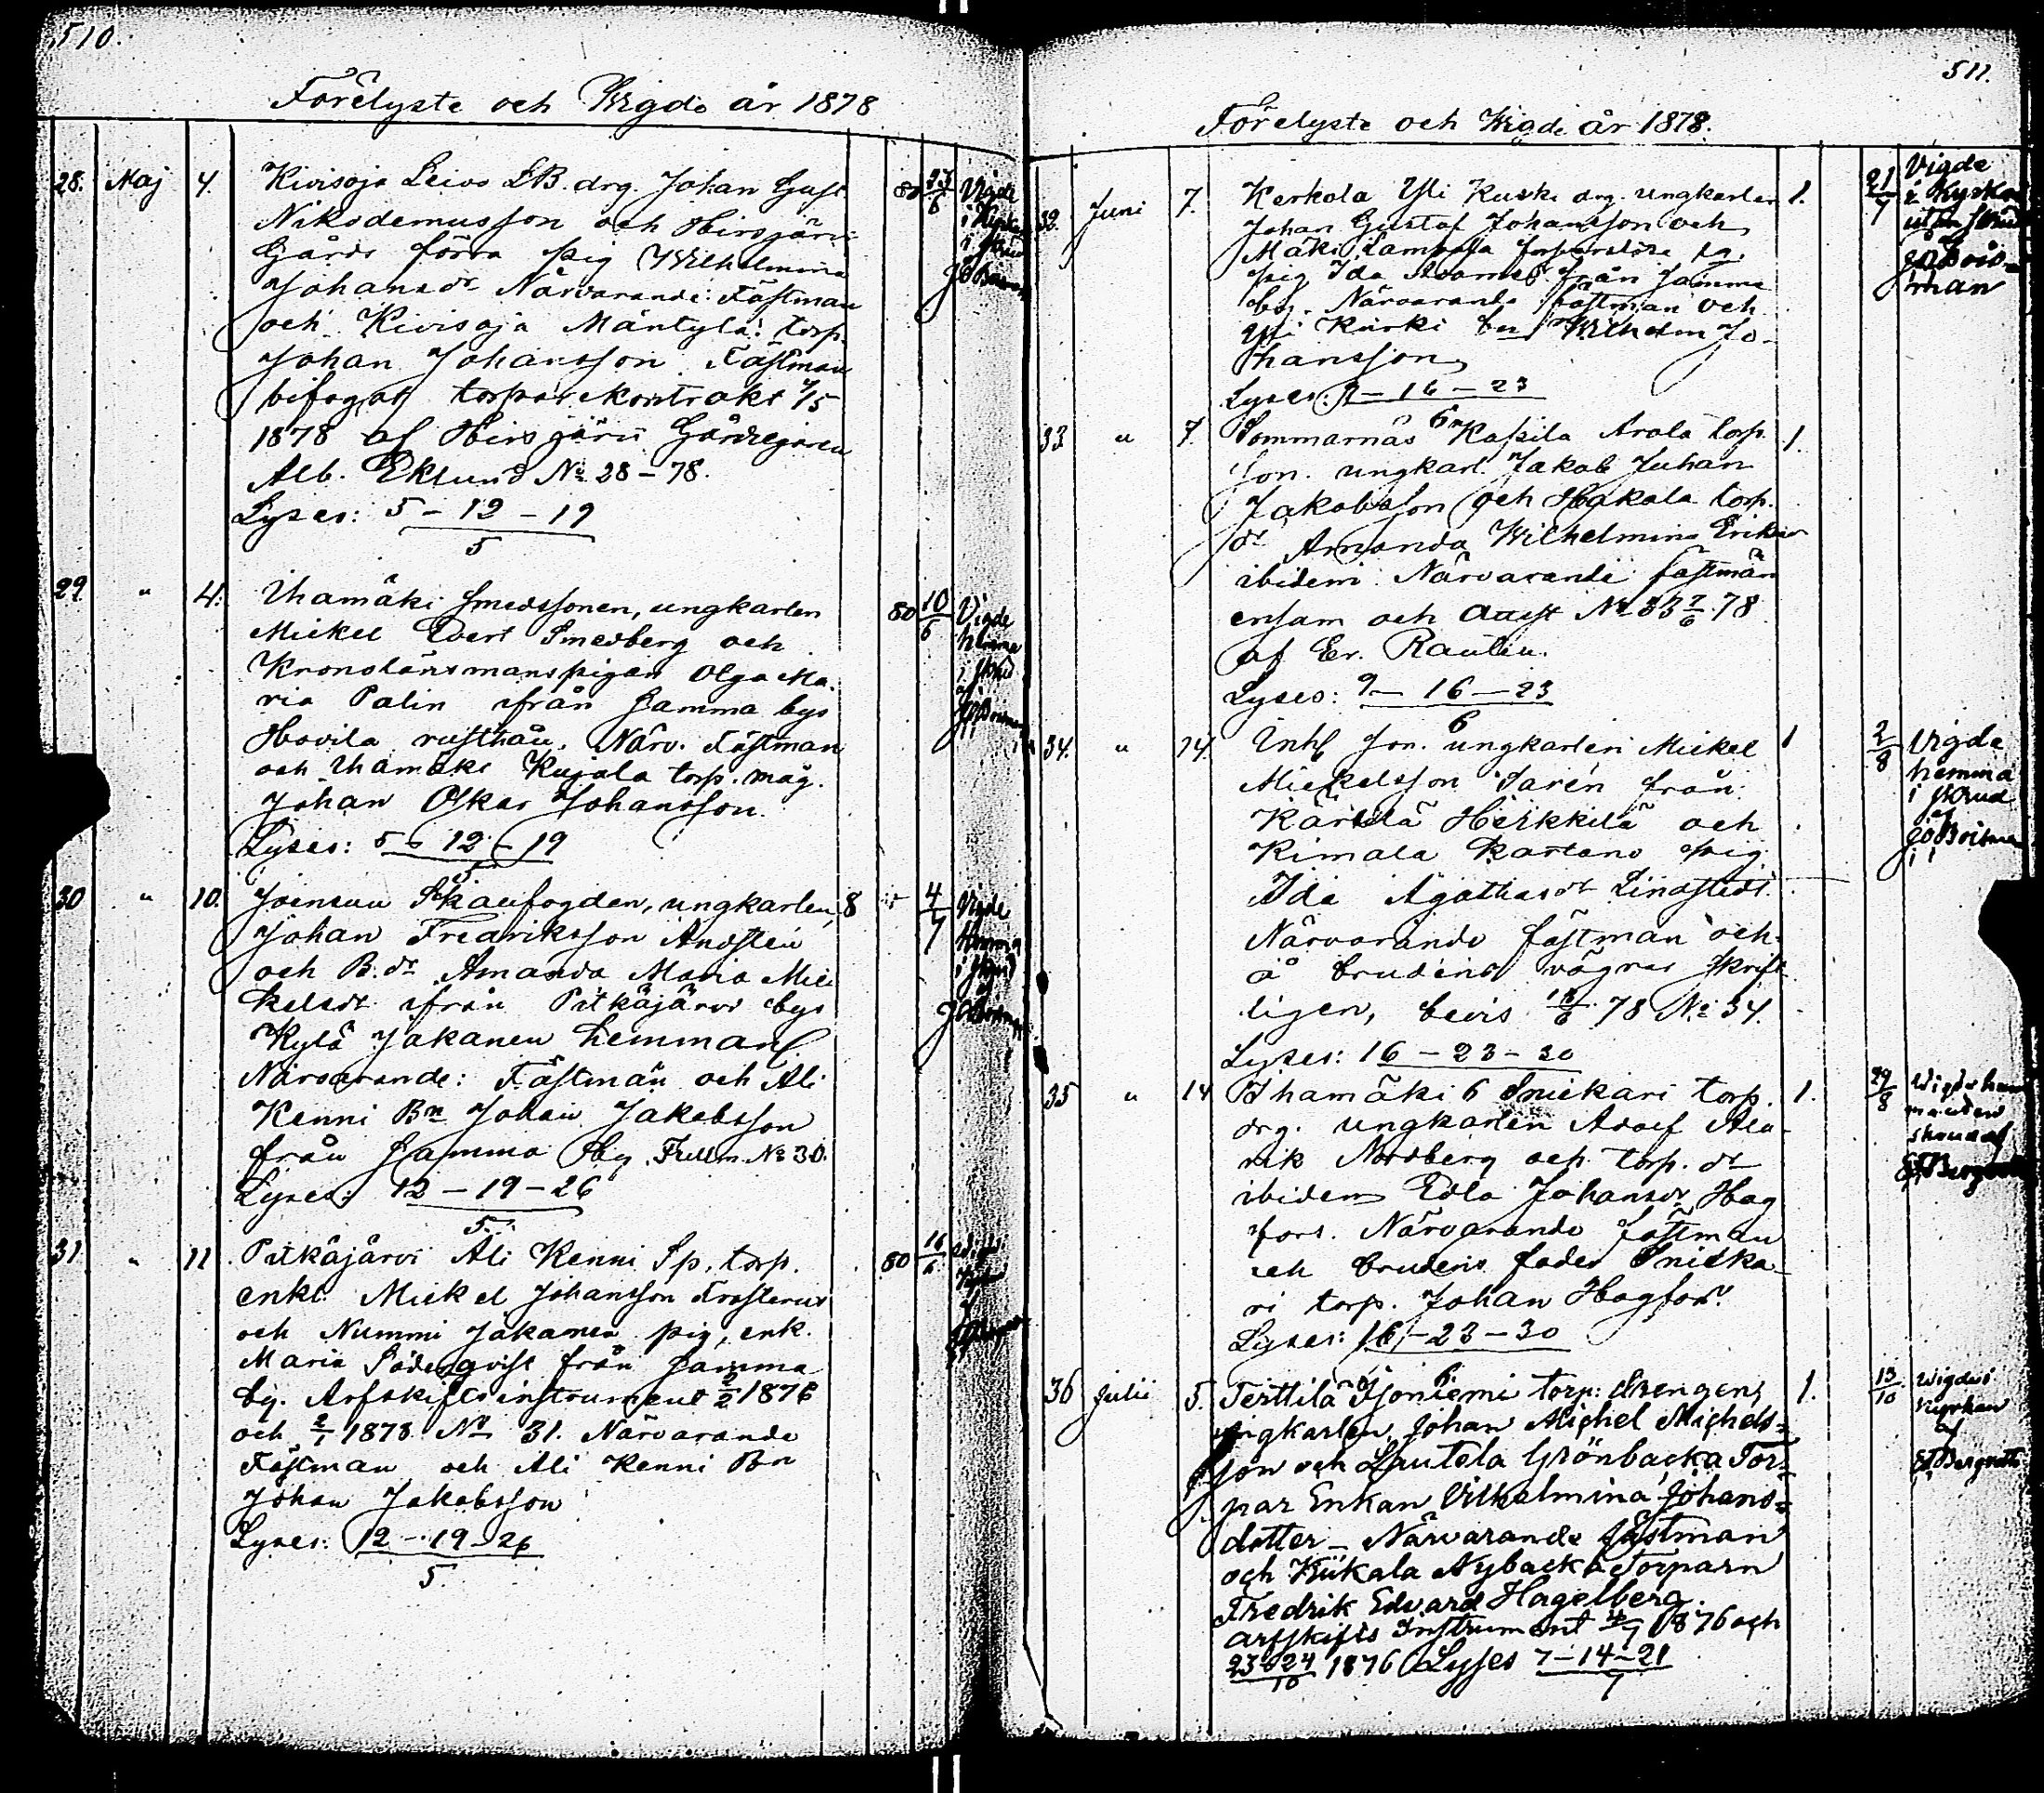 510.
Förelyste och Wigde år 1878
28. Maj 4. Kivisoja Leivo LB. drg. Johan Gust.
Nikodemusson och Hirsjärvi
Gårds förra pig Wilhelmina
Johansdr Närvarande: Fästman
och Kivisoja Mäntylä torp.
Johan Johansson. Fästman
bifogat torparekontrakt 4/5
1878 af Hirsjärvi Gårdsegaren
Alb. Eklund No 28-78.
Lyses: 5-12-19
5
80
Vigde
i Kyrkan
i skrud
29. " 4. Uhamäki smedssonen, ungkarlen
Mickel Evert Smedberg och
Kronolänsmanspigan Olga Ma-
ria Palin ifrån samma bys
Hovila rusthåll. Närv. Fästman
och Uhamäki Kujala torp. måg.
Johan Oskar Johansson.
Lyses: 5-12-19
5
80 10/6 Vigde
hemma
i skrud
af
30 " 10. Joensuu Skaufogden, ungkarlen
Johan Fredriksson Andsten
och B.dr Amanda Maria Mic-
kelsdr ifrån Pitkäjärvi bys
Kylä Jakanen hemman.
Närvarande: Fästman och Ali
Kenni Bn Johan Jakobsson
från samma by. Fullm. No 30.
Lyses: 12-19-26
5.
8
4/7 Vigde
hemma
i skrud
31. " 11. Pitkäjärvi Ali Kenni Sp. torp.
enkl. Mickel Johansson Frosterus
och Nummi Jakanen pig, enk.
Maria Söderqvist från samma
by. Arfskiftesinstrument 2/2 1876
och 2/1 1878 No 31. Närvarande
Fästman och Ali Kenni Bn
Johan Jakobsson
Lyses: 12-19-26
5.
80 16/6
511.
Förelyste och Wigde år 1878.
32. Juni 7. Kerkola Yli Kurki drg. ungkarlen
Johan Gustaf Johansson och
Mäki Lampola
pig Ida Adamsdr från samma
by. Närvarande fästman och
Yli Kurki bn Wilhelm Jo-
hansson
Lyses: 9-16-23
6
1. 21/7 Vigde
i Kyrkan
utan skrud
af
JO Bois-
man
33 " 7. Sommarnäs Kapila Arola torp.
son. ungkarl. Jakob Juhan
Jakobsson och Hakala torp.
dr Amanda Wilhelmina Eriksdr
ibidem. Närvarande fästman
ensam och attest No 33 7/6 78
af Er. Rautell.
Lyses: 9-16-23
6
1.
34. " 14. Inh. son. ungkarlen Mickel
Mickelsson Saren från
Kärkelä Heikkilä och
Kimala Kartano pig
Ida Agathasdr Lindstedt.
Närvarande fästman och
å brudens vägnar skrift-
ligen, bevis 78 No 34.
Lyses: 16-23-30
6
1 2/8 Vigde
hemma
i skrud
af
JO Boisman
35 " 14 Ihamäki Snickari torp.
drg. ungkarlen Adolf Ala-
rik Nordberg och torp. dr
ibidem Edla Johansdr Hag
fors. Närvarande fästman
och brudens fader Snicka-
ri torp. Johan Hagfors.
Lyses: 16-23-30
6
1. 29/8 Wigde hem
ma utan
skrud af
36 Julii 5. Terttilä Isoniemi torp: drengen,
ungkarlen, Johan Michel Michels=
son och Lautela Grönbacka Tor=
par Enkan Vilhelmina Johans=
dotter - Närvarande fästman
och Kiikala Nybacka Torparn
Fredrik Edvard Hagelberg.
arfskiftes Instrument 4/7 1876 och
23 o 24/10 1876 Lyses 7-14-21
7
1. 13/10 Wigde i
kyrkan
af